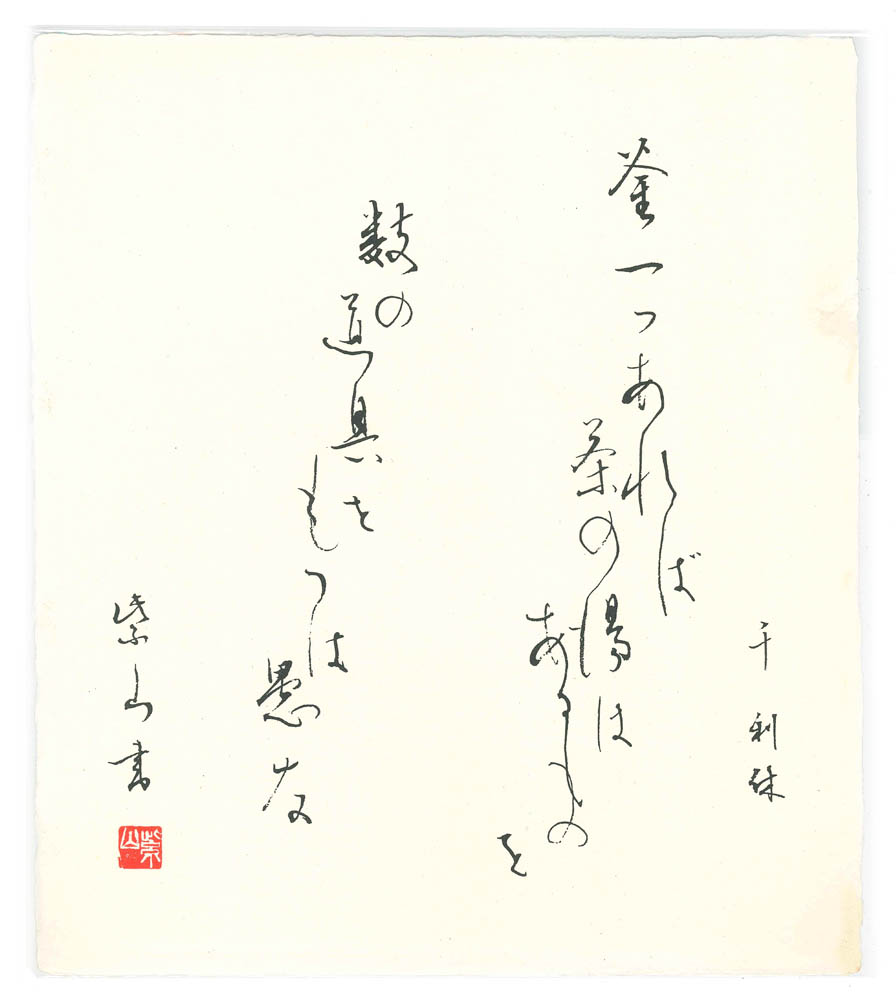 千利休
釜一つあれば
茶の湯は
あるものを
数の
道具を
もつは
愚な
紫山書
紫山